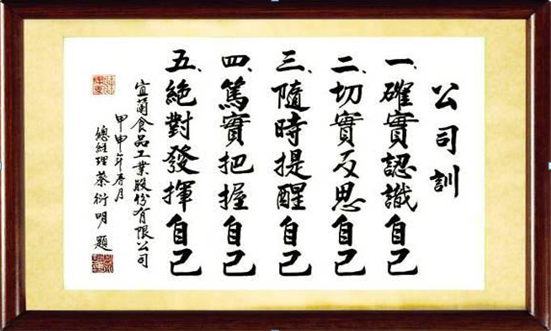 公司訓
一、確實認識自己
二、切實反思自己
三、隨時提醒自己
四、篤實把握自己
五、絕對發揮自己
宜蘭食品工業股份有限公司
甲申年春月
總經理 蔡衍明 題